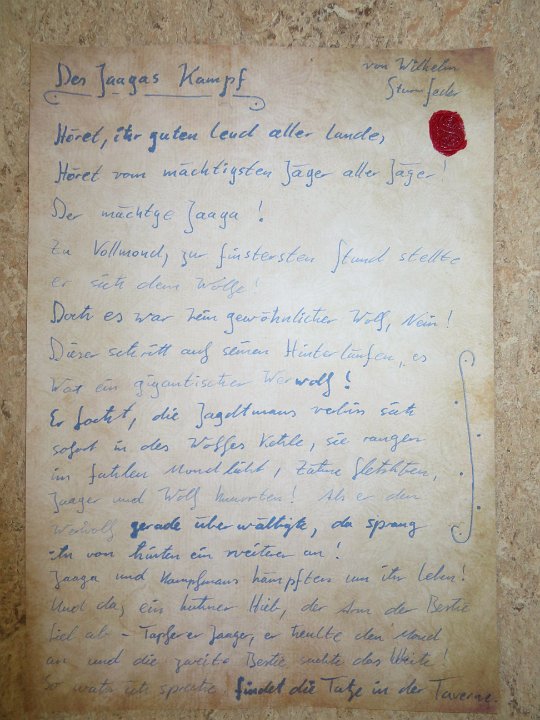 Des Jaagas Kampf
von Wilhelm
Sturmfeder
Höret, ihr guten Leud aller Lande,
Höret vom mächtigsten Jäger aller Jäger!
Der mächtge Jaaga!
Zu Vollmond, zur finstersten Stund stellte
er sich dem Wolfe!
Doch es war kein gewöhnlicher Wolf, Nein!
Dieser schritt auf seinen Hinterläufen, es
war ein gigantischer Werwolf!
Er focht, die Jagdtmaus verbiss sich
sofort in des Wolfes Kehle, sie rangen
im fahlen Mondlicht, Zähne fletschten,
Jaager und Wolf knurrten! Als er den
Werwolf gerade überwältigte, da sprang
ihn von hinten ein zweiter an!
Jaaga und Kampfmaus kämpften um ihr Leben!
Und da, ein kühner Hieb, der Arm der Bestie
fiel ab - Tapferer Jaager, er heulte den Mond
an und die zweite Bestie suchte das Weite!
So wahr ich spreche, findet die Tatze in der Taverne.